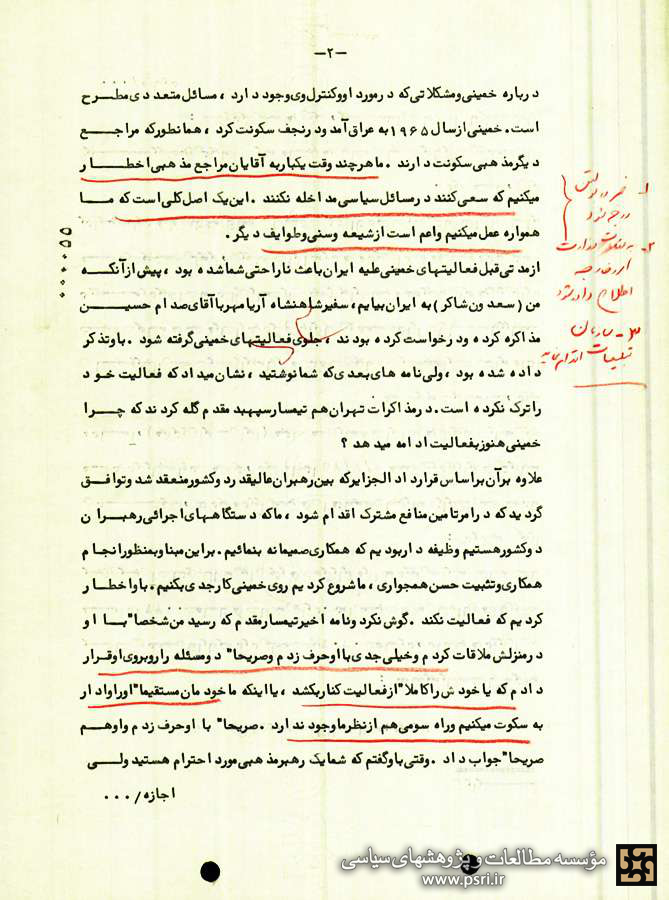 —۲—
درباره خمینی ومشکلاتی که در مورد او وکنترل وی وجود دارد ، مسائل متعددی مطرح
است . خمینی از سال ۱۹۶۵ به عراق آمد ودر نجف سکونت کرد ، همانطور که مراجع
دیگر مذهبی سکونت دارند . ما هر چند وقت یکبار به آقایان مراجع مذهبی اخطار
میکنیم که سعی کنند در مسائل سیاسی مداخله نکنند . این یک اصل کلی است که ما
همواره عمل میکنیم واعم است از شیعه وسنی وطوایف دیگر .
از مدتی قبل فعالیتهای خمینی علیه ایران باعث ناراحتی شما شده بود ، پیش از آنکه
من ( سعدون شاکر ) به ایران بیایم ، سفیر شاهنشاه آریامهر با آقای صدام حسین
مذاکره کرده ودرخواست کرده بودند ، جلوی فعالیتهای خمینی گرفته شود . باو تذکر
داده شده بود ، ولی نامه های بعدی که شما نوشتید ، نشان میداد که فعالیت خود
را ترک نکرده است . در مذاکرات تهران هم تیمسار سپهبد مقدم گله کردند که چرا
خمینی هنوز بفعالیت ادامه میدهد ؟
علاوه بر آن بر اساس قرارداد الجزایر که بین رهبران عالیقدر دو کشور منعقد شد وتوافق
گردید که در امر تامین منافع مشترک اقدام شود ، ما که دستگاههای اجرائی رهبران
دو کشور هستیم وظیفه داریم که همکاری صمیمانه بنمائیم . براین مبنا وبمنظور انجام
همکاری وتثبیت حسن همجواری ، ما شروع کردیم روی خمینی کار جدی بکنیم . باو اخطار
کردیم که فعالیت نکند . گوش نکرد ونامه اخیر تیمسار مقدم که رسید من شخصا" با او
در منزلش ملاقات کردم وخیلی جدی با او حرف زدم وصریحا" دو مسئله را روبروی او قرار
دادم که یا خودش را کاملا" از فعالیت کنار بکشد ، یا اینکه ما خودمان مستقیما" او را وادار
به سکوت میکنیم وراه سومی هم از نظر ما وجود ندارد . صریحا" با او حرف زدم واو هم
صریحا" جواب داد . وقتی باو گفتم که شما یک رهبر مذهبی مورد احترام هستید ولی
اجازه / ۰۰۰
۰۰۰۰۵۵
۱-
۲-
وزارت
امور خارجه
اطلاع داده شود
۳-
تبلیغات
مؤسسه مطالعات و پژوهشهای سیاسی
www.psri.ir